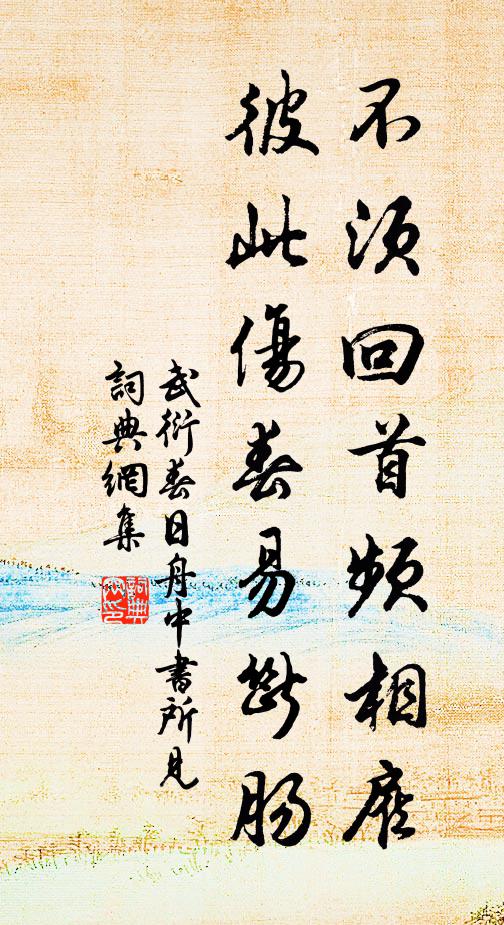 不須回首頻相應
彼此傷春易斷腸
武衍春日舟中書所見
詞典網集